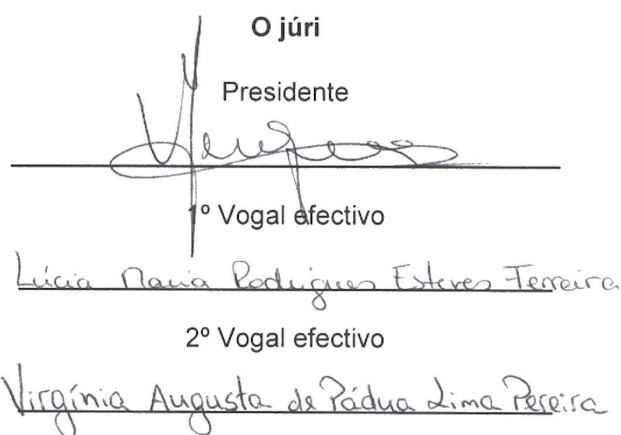 O júri
Presidente
1º Vogal efectivo
Lúcia Maria Rodrigues Esteves Ferreira
2º Vogal efectivo
Virgínia Augusta de Pádua Lima Pereira